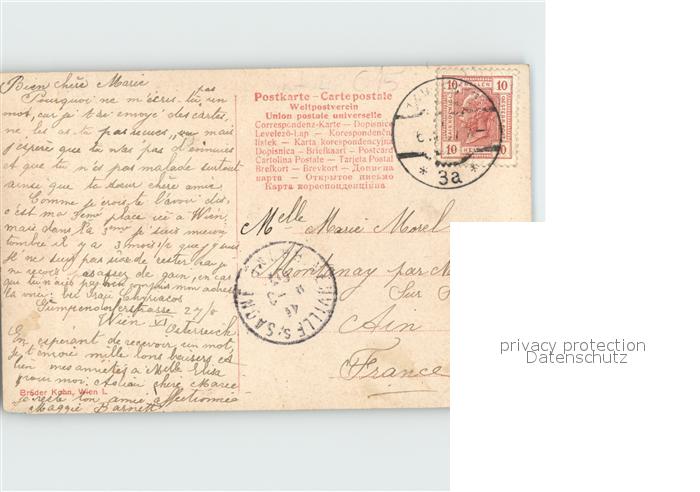 Bien chère Marie
Pourquoi ne m'écris-tu pas un
mot, car je t'ai envoyé des cartes,
ne les as-tu pas reçues, ou mais
j'espère que tu n'as pas d'ennuies
et que tu n'es pas malade surtout
ainsi que ta sœur chère amie.
Comme je crois te l'avoir dis,
c'est ma 3ème place ici à Wien,
mais dans la 3me je suis
tombée il y a 3 mois 1/2 que j'y suis
Je ne suis pas sûre de rester car je
ne reçois pas assez de gain, en cas
que tu n'aies pas mon adresse
la voici:
Gumpendorferstrasse
Wien VI Oesterreich
En espérant de recevoir un mot,
je t'envoie mille bons baisers et
bien mes amitiés à Melle Elisa
pour moi. Adieu chère Marie
je reste ton amie affectionnée
Maggie Barnett
Bröder Kohn, Wien I.
Postkarte – Carte postale
Weltpostverein
Union postale universelle
Correspondenz-Karte – Dopisnice
Levelező-Lap – Korespondenčn
listek – Karta korespondencyjna
Dopisnica – Briefkaart – Postcard
Cartolina Postale – Tarjeta Postal
Brefkort – Brevkort – Дописна
карта – Открытое письмо
Карта кореспонденційна
10 10
10 10
* 3a *
Melle Marie Morel
Montenay par M
Sur S
Ain
France
privacy protection
Datenschutz